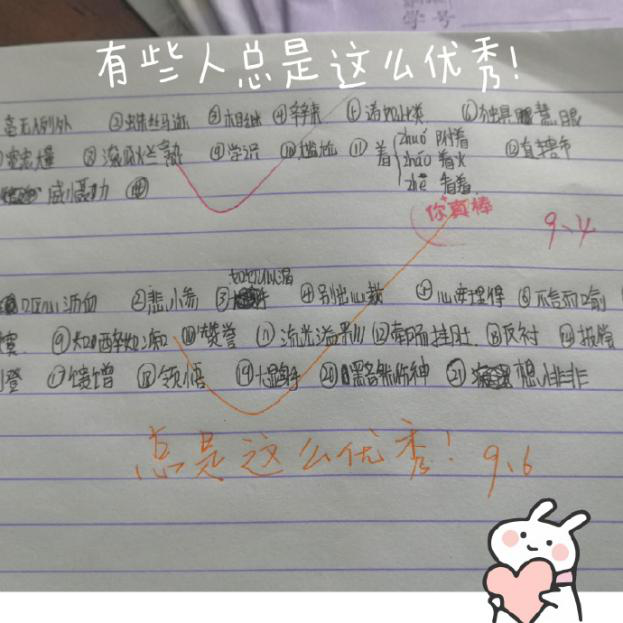 有些人总是这么优秀!
毫无例外 ②蛛丝马迹 ③相继 ④ ⑤诸如此类 ⑥独具慧眼
⑧滚瓜烂熟 ⑨学识 ⑩尴尬 ⑪着 zhuó 附着 zháo 着火 zhe 看着 ⑫直辖市
你真棒
9、4
呕心沥血 ② ③ ④别出心裁 ⑤心安理得 ⑥不言而喻
⑨如醉如痴 ⑩赞誉 ⑪流光溢彩 ⑫牵肠挂肚 ⑬反衬 ⑭报偿
登 ⑰馈赠 ⑱领悟 ⑲大显身手 ⑳黯然伤神 ㉑想入非非
总是这么优秀! 9、6